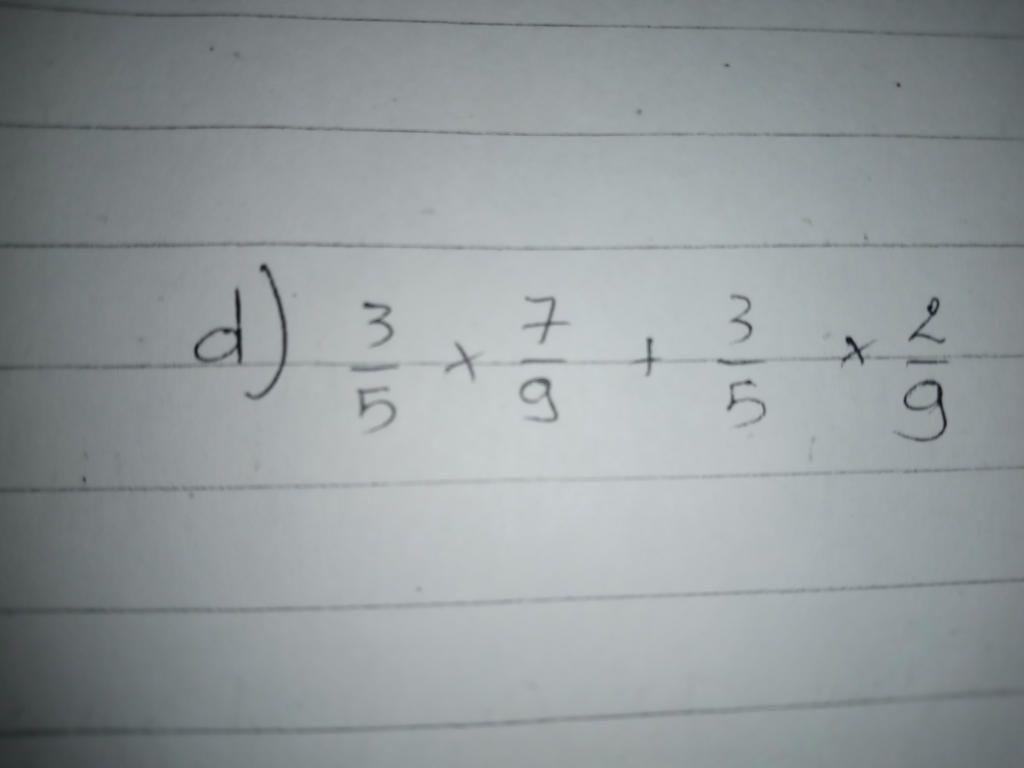 d) 3/5 × 7/9 + 3/5 × 2/9